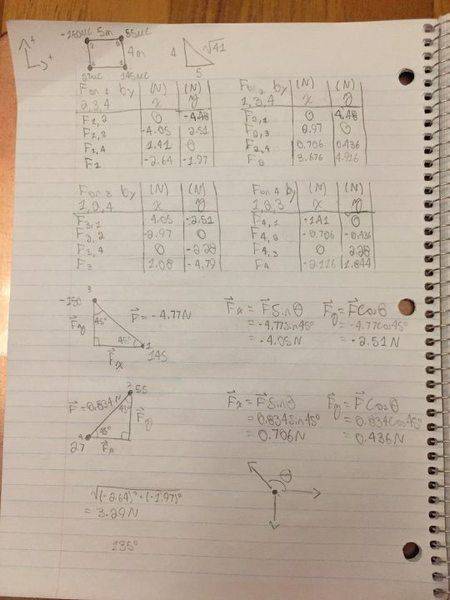 -150μC 5m 55μC
4m 4 √41
27μC 145μC 5
F on 1 by (N) (N)
2,3,4 x y
F1,2 0 -4.48
F1,3 -4.05 2.51
F1,4 1.41 0
F1 -2.64 -1.97
F on 2 by (N) (N)
1,3,4 x y
F2,1 0 4.48
F2,3 2.97 0
F2,4 0.706 0.436
F2 3.676 4.916
F on 3 by (N) (N)
1,2,4 x y
F3,1 4.05 -2.51
F3,2 -2.97 0
F3,4 0 -2.28
F3 1.08 -4.79
F on 4 by (N) (N)
1,2,3 x y
F4,1 -1.41 0
F4,2 -0.706 -0.436
F4,3 0 2.28
F4 -2.116 1.844
3
-150
45° F = -4.77N
Fy
45° 1
Fx 145
Fx = F sin θ
= -4.77 sin 45°
= -4.05 N
Fy = F cos θ
= -4.77 cos 45°
= -2.51 N
2 55
F = 0.834N 45° Fy
4 45°
27 Fx
Fx = F sin θ
= 0.834 sin 45°
= 0.706 N
Fy = F cos θ
= 0.834 cos 45°
= 0.436 N
θ
√(-2.64)² + (-1.97)²
= 3.29 N
135°